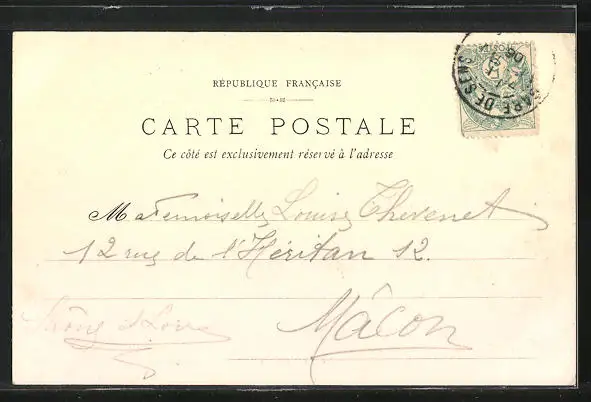 RÉPUBLIQUE FRANÇAISE
CARTE POSTALE
Ce côté est exclusivement réservé à l'adresse
GARE DE SENS
POSTES
Mademoiselle Louise Thevenet
12 rue de l'Héritan 12.
Mâcon
Saône et Loire